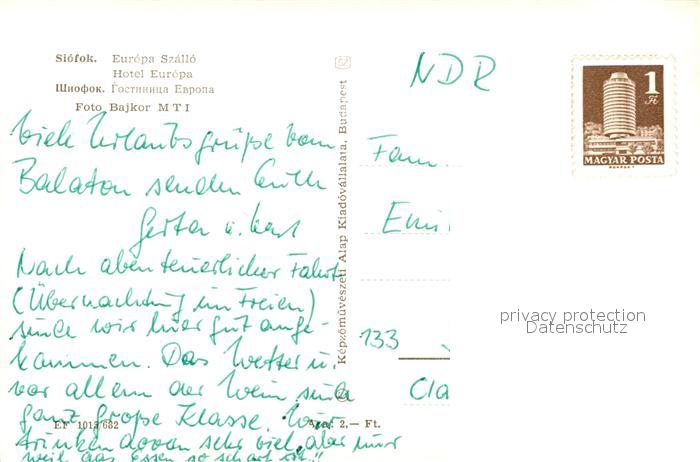 Siófok. Európa Szálló
Hotel Európa
Шиофок. Гостиница Европа
Foto Bajkor MTI
Viele Urlaubsgrüße vom
Balaton senden Euch
Gerta u. Karl
Nach abenteuerlicher Fahrt
(Übernachtung im Freien)
sind wir hier gut ange-
kommen. Das Wetter u.
vor allem der Wein sind
ganz große Klasse. Wir
trinken davon sehr viel, aber nur
weil das Essen so scharf ist!!
EF 1013/682
Ára: 2,— Ft.
Képzőművészeti Alap Kiadóvállalata, Budapest
NDR
Fam.
Emi
133
Cla
1
Ft
MAGYAR POSTA
privacy protection
Datenschutz